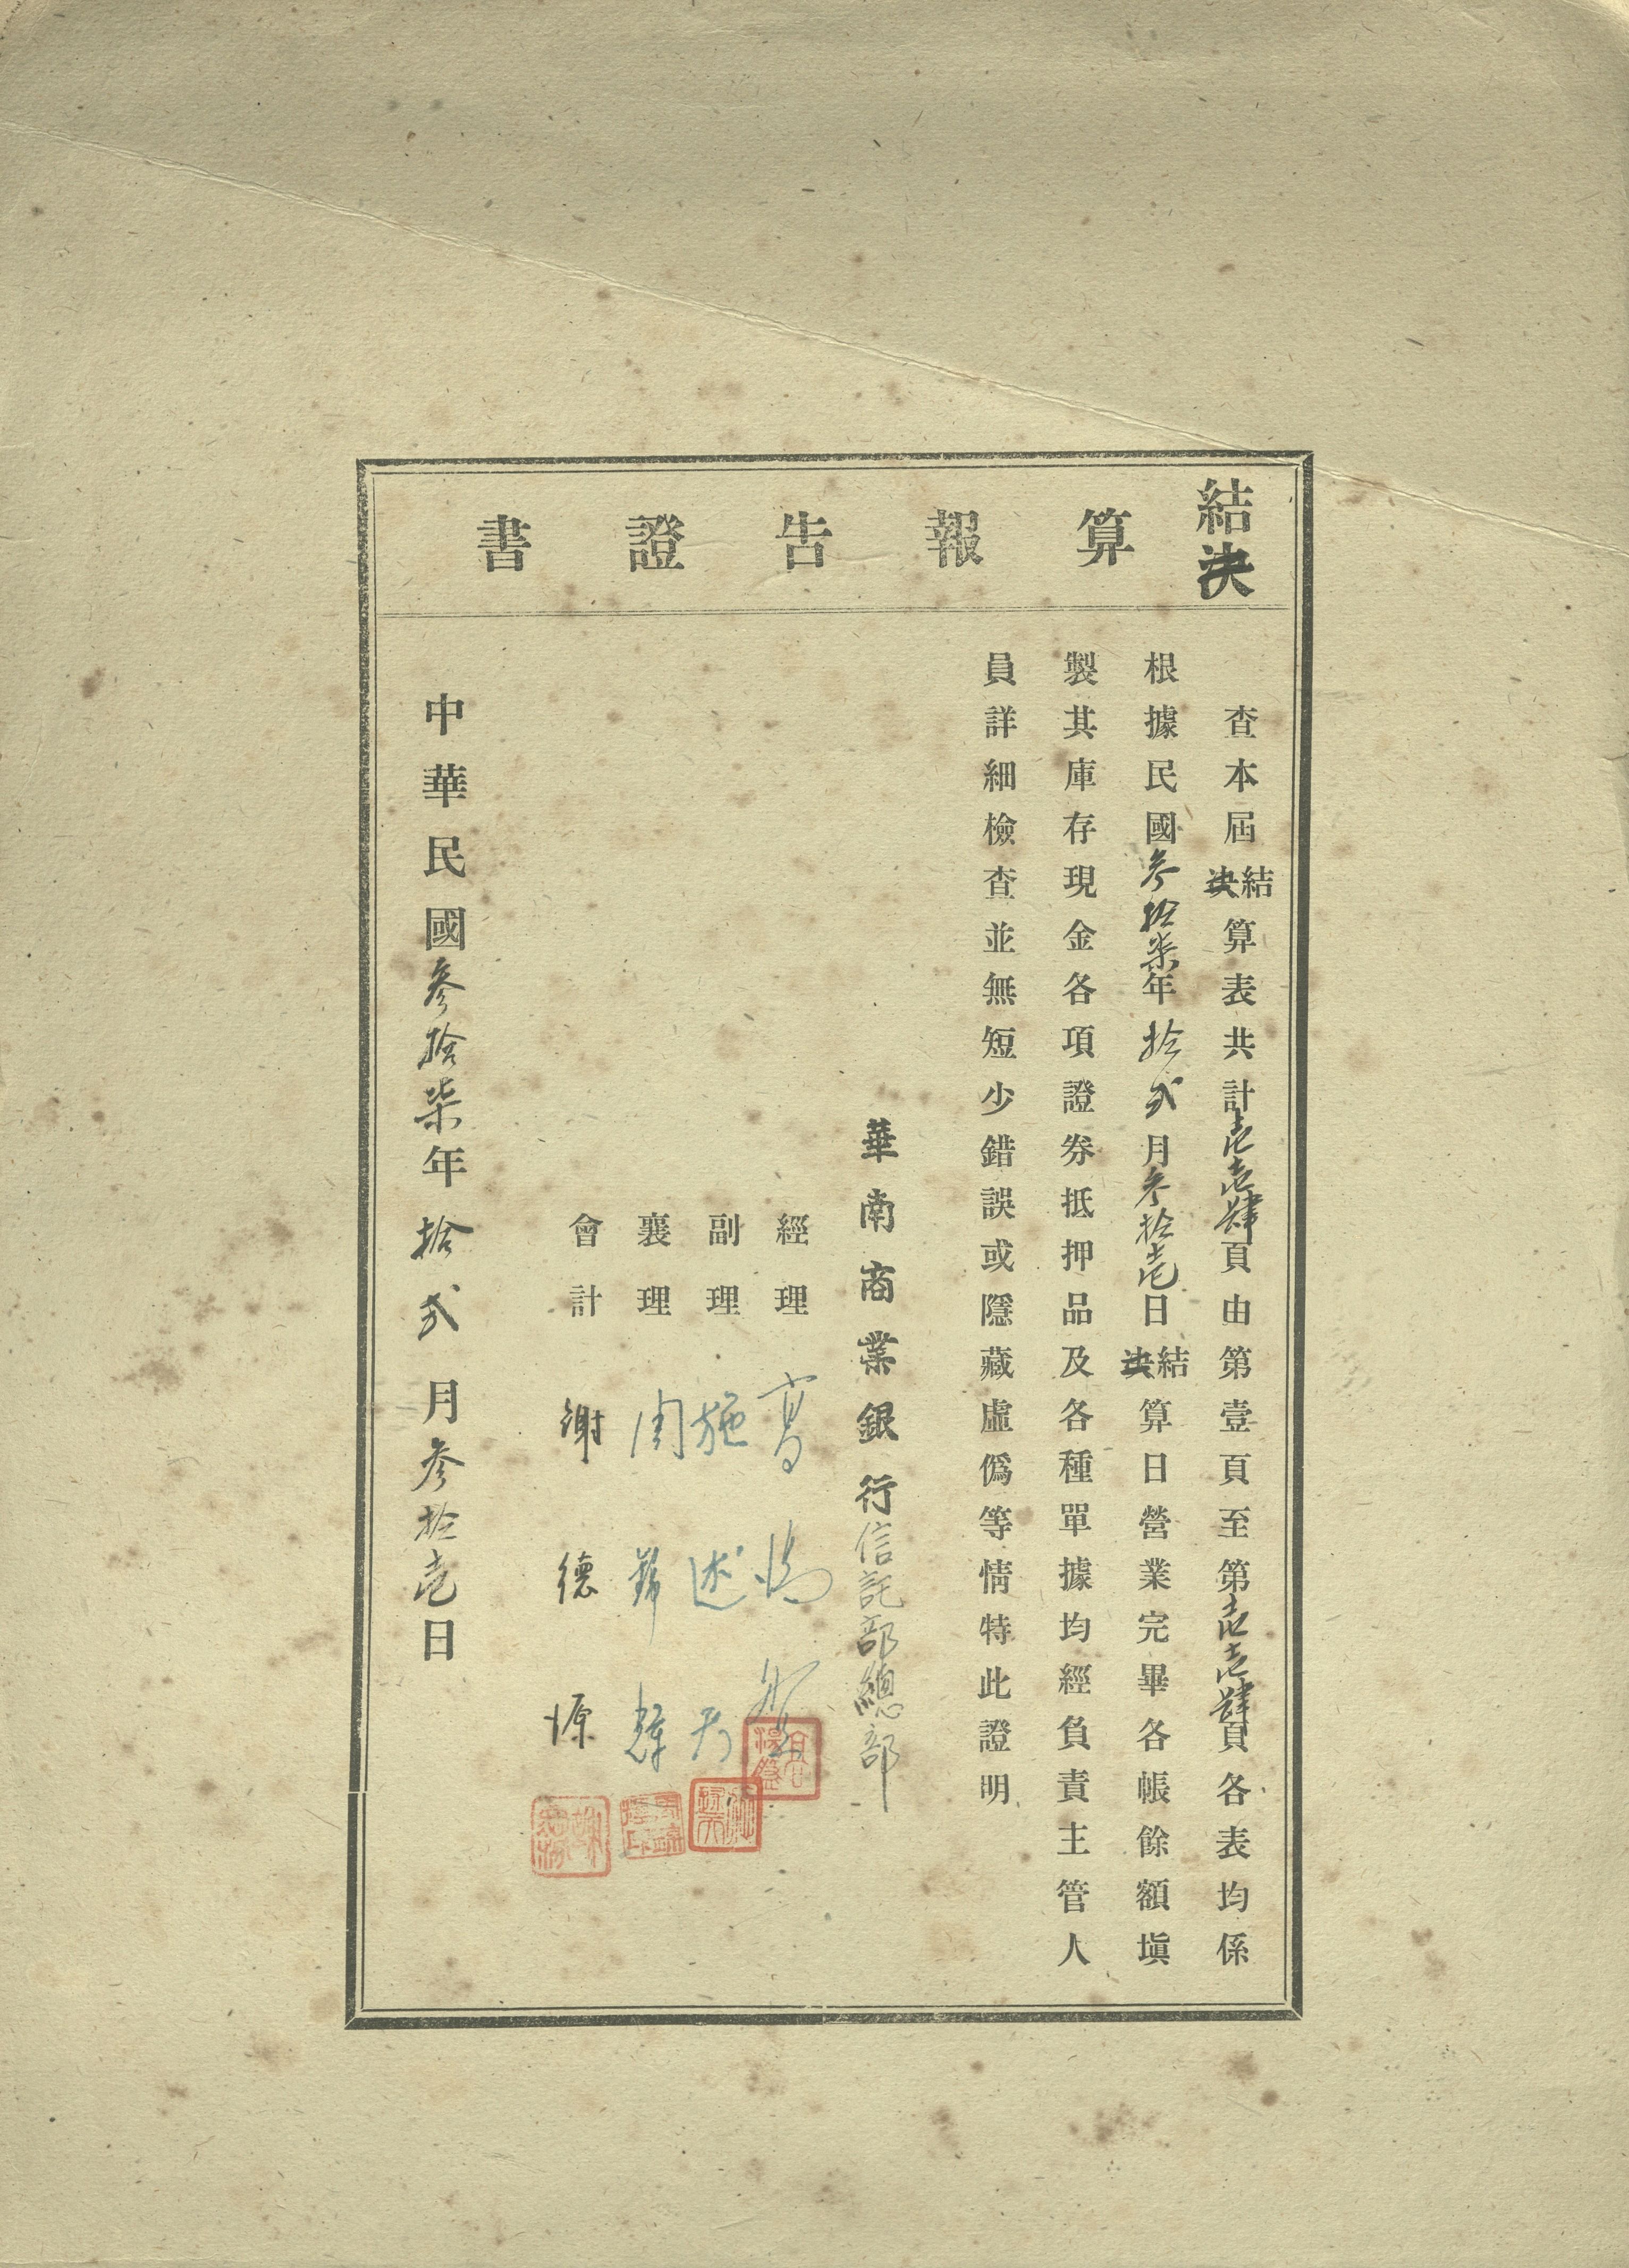 結決算報告證書
查本屆結決算表共計壱壱肆頁由第壹頁至第壱壱肆頁各表均係
根據民國參拾柒年拾弍月參拾壱日結決算日營業完畢各帳餘額塡
製其庫存現金各項證券抵押品及各種單據均經負責主管人
員詳細檢查並無短少錯誤或隱藏虛僞等情特此證明
華南商業銀行信託部總部
經理 高
副理 施述天
襄理 周
會計 謝德源
中華民國參拾柒年拾弍月參拾壱日